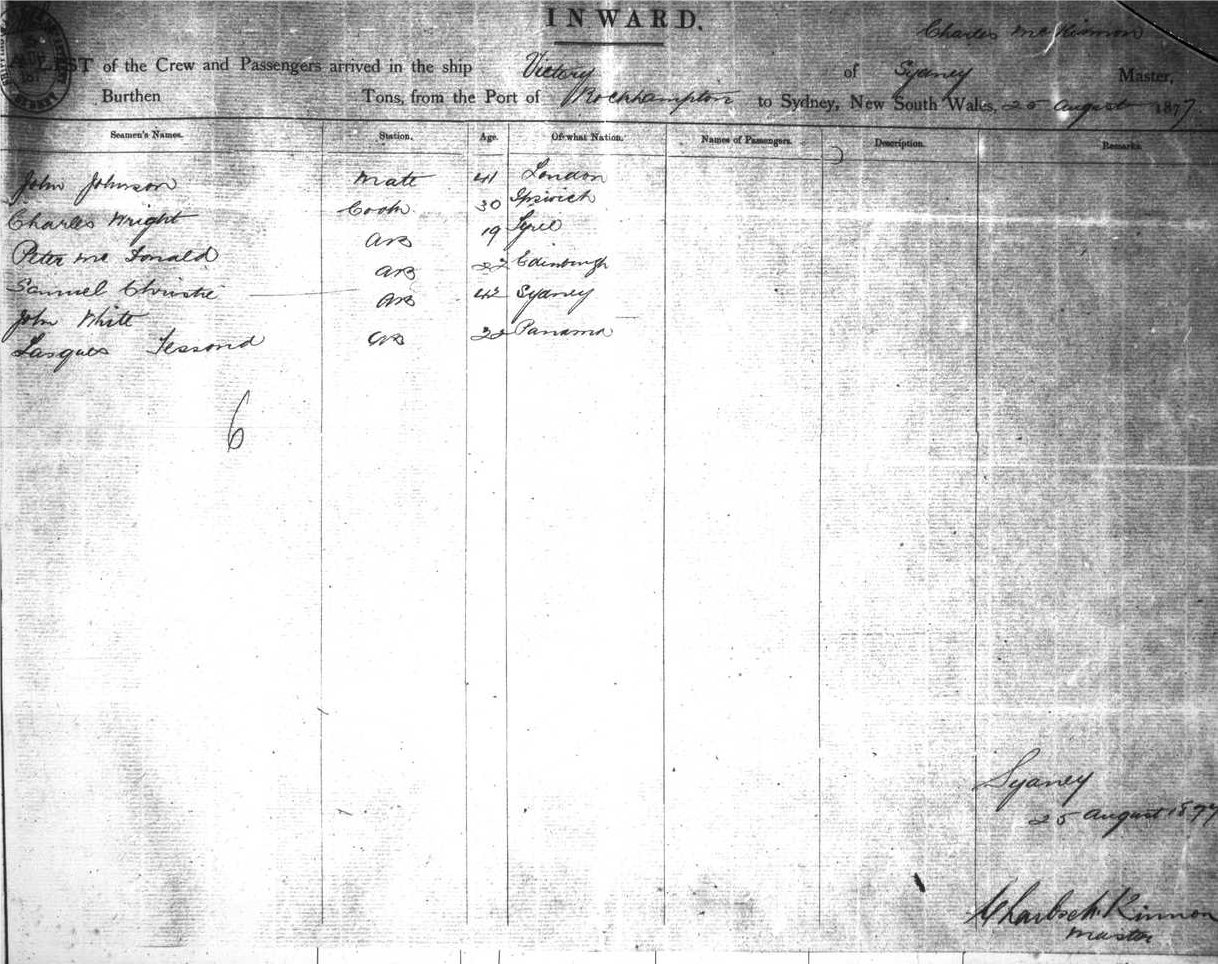 INWARD.
Charles McKinnon
LIST of the Crew and Passengers arrived in the ship Victory of Sydney Master,
Burthen Tons, from the Port of Rockhampton to Sydney, New South Wales, 25 August 1877
Seamen's Names. Station. Age. Of what Nation. Names of Passengers. Description. Remarks.
John Johnson Mate 41 London
Charles Wright Cook 30 Ipswich
Peter McDonald AB 19
Samuel Christie AB 22 Edinburgh
John White AB 42 Sydney
AB 22 Panama
6
Sydney
25 August 1877
Charles McKinnon
Master